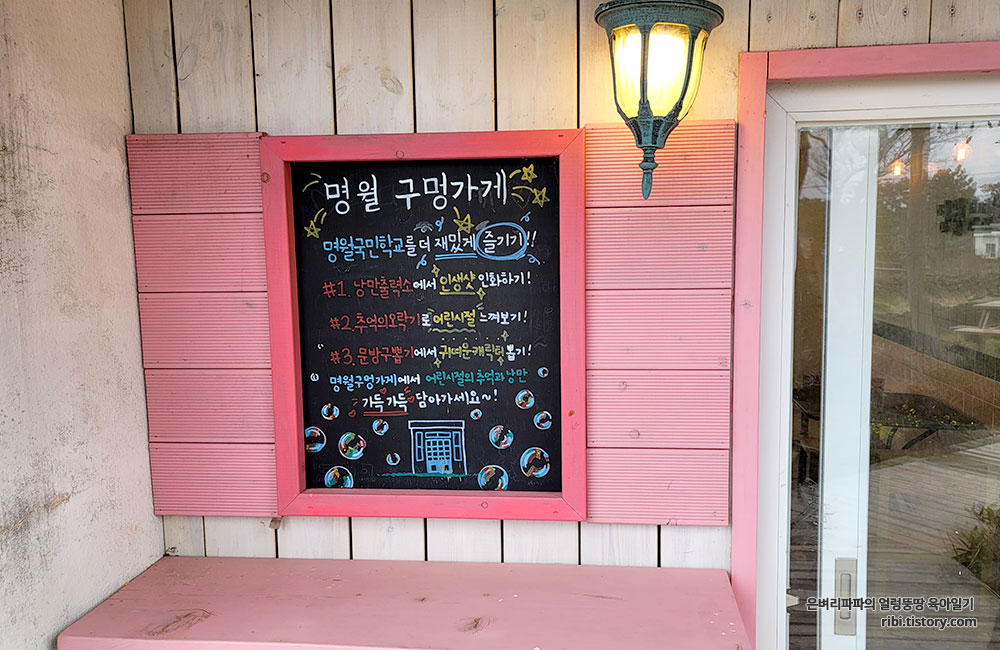 명월 구멍가게
명월국민학교를 더 재밌게 즐기기!!
#1. 낭만출력소에서 인생샷 인화하기!
#2. 추억의오락기로 어린시절 느껴보기!
#3. 문방구뽑기에서 귀여운캐릭터 뽑기!
명월구멍가게에서 어린시절의 추억과 낭만
가득가득 담아가세요~!
은벼리파파의 얼렁뚱땅 육아일기
ribi.tistory.com